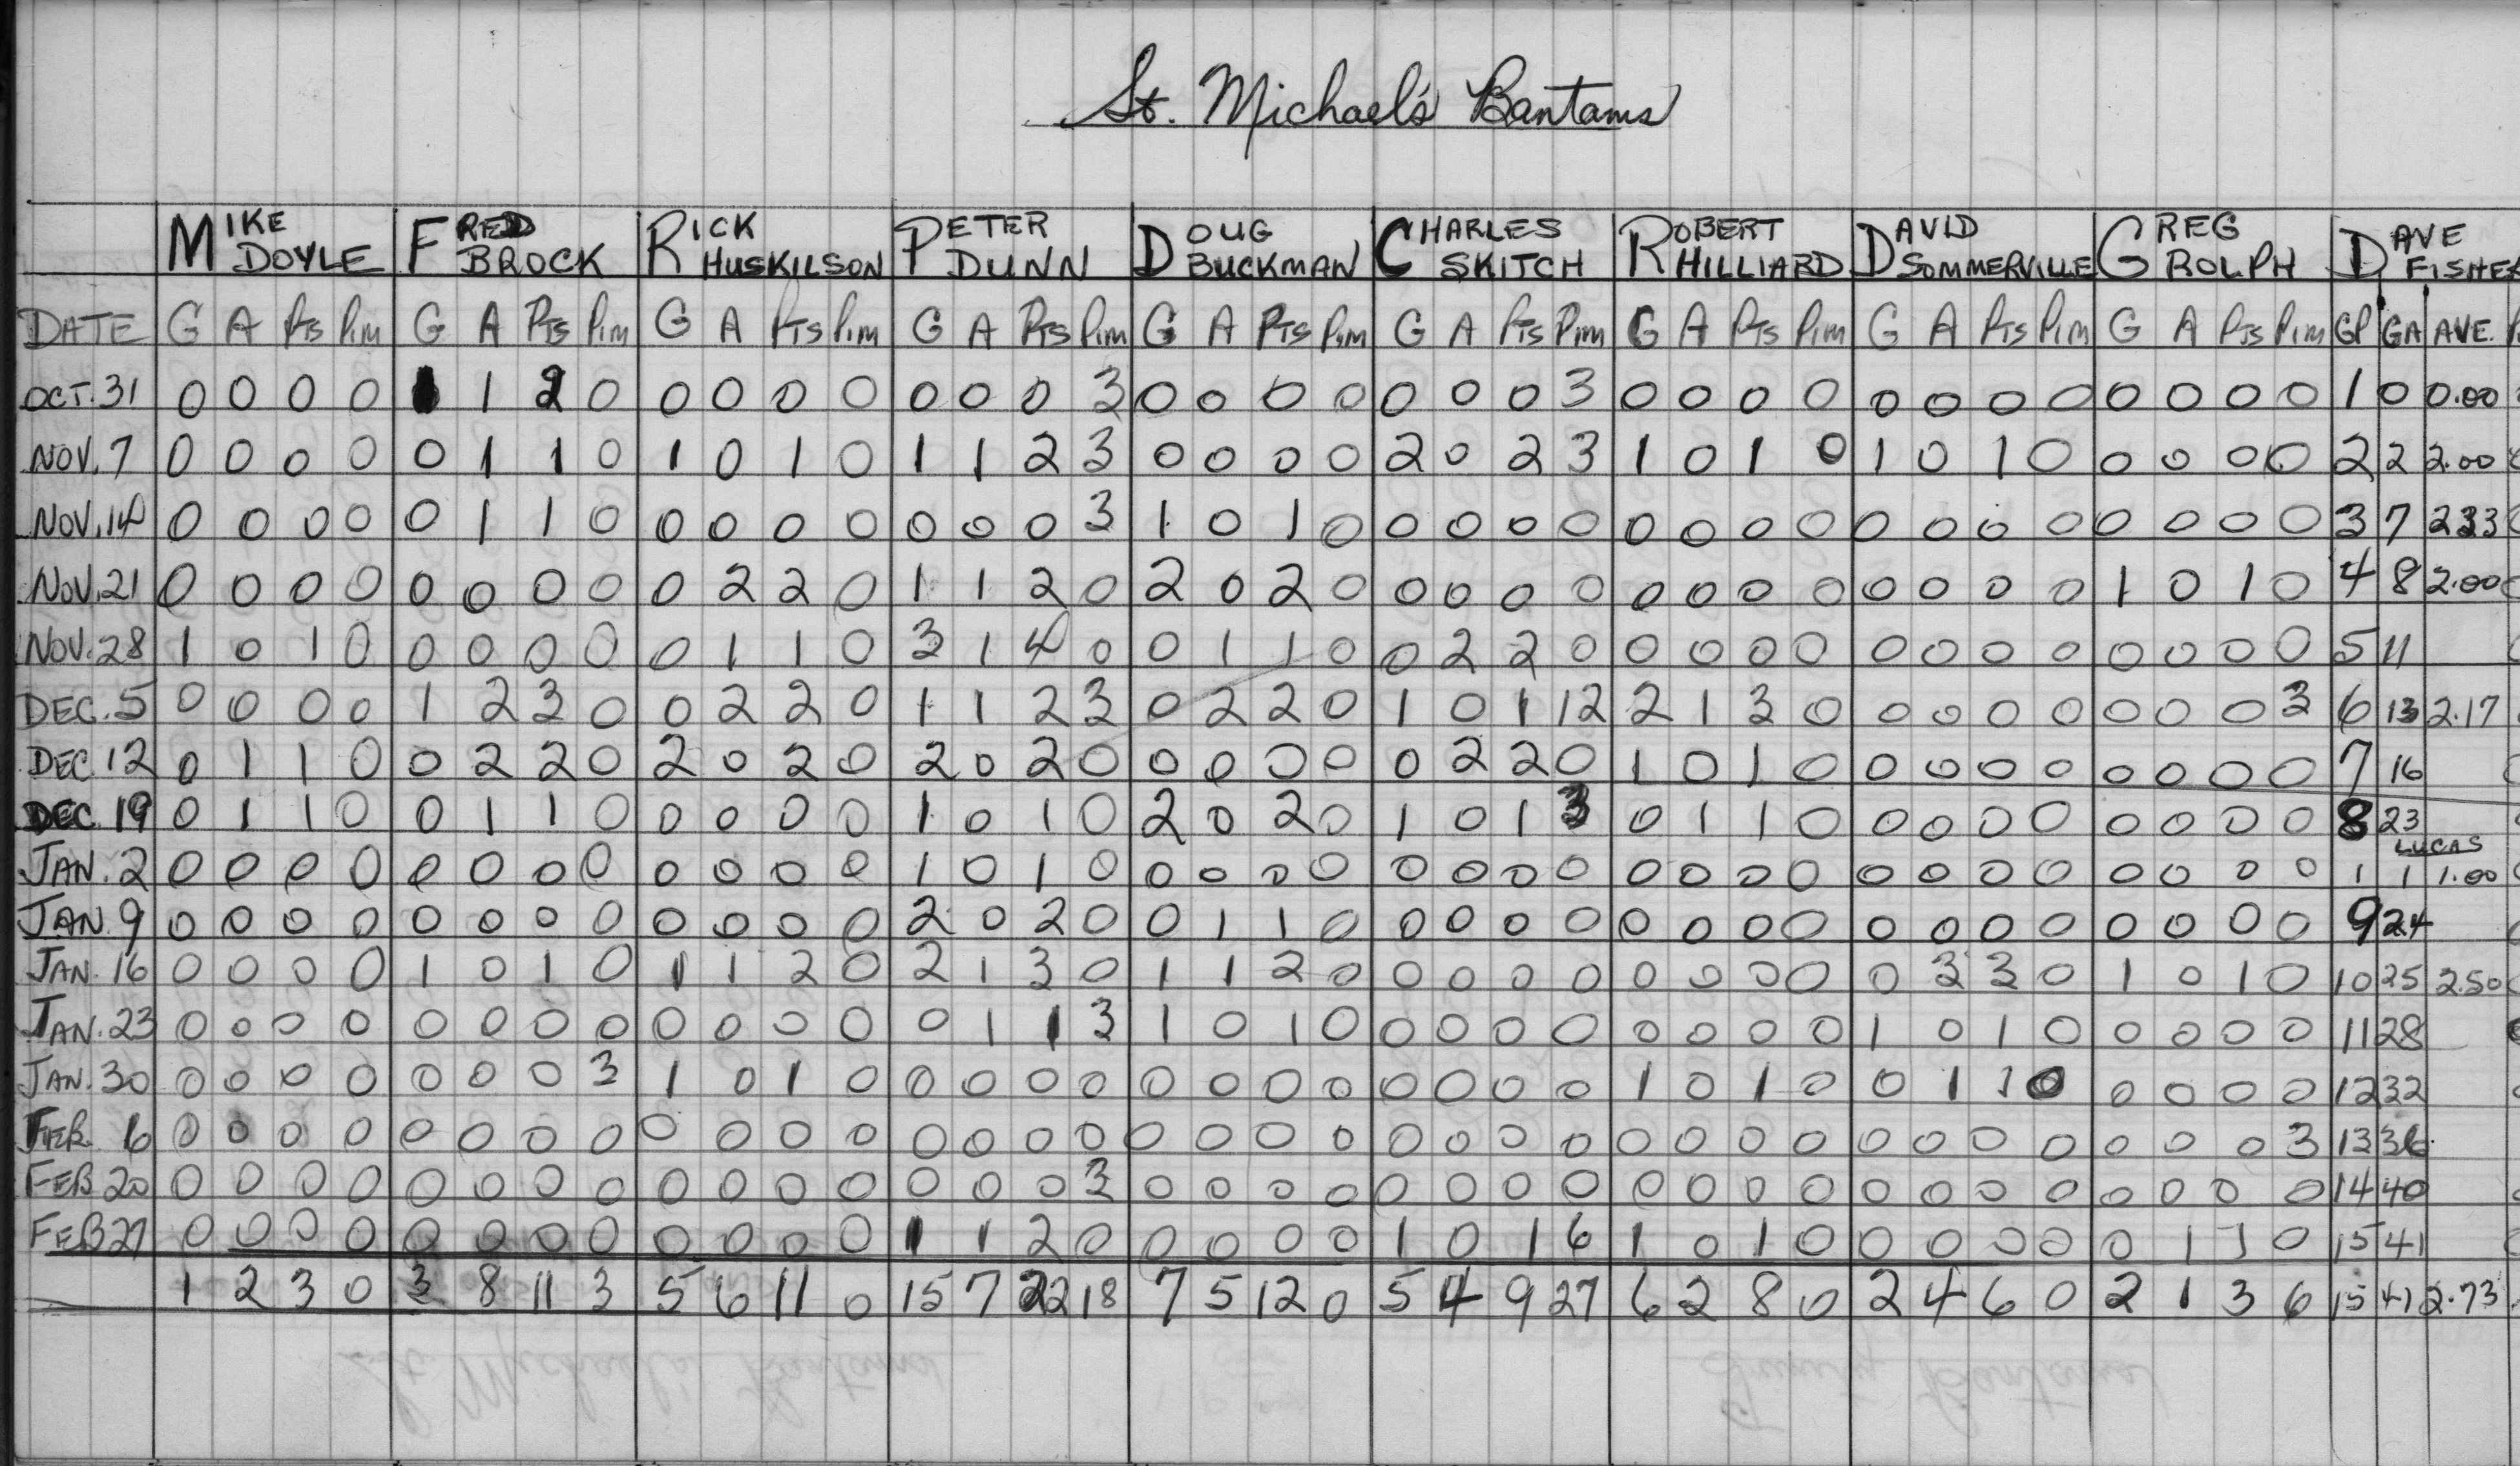 St. Michael's Bantams
MIKE DOYLE FRED BROCK RICK HUSKILSON PETER DUNN DOUG BUCKMAN CHARLES SKITCH ROBERT HILLIARD DAVID SOMMERVILLE GREG ROLPH DAVE FISHER
DATE G A Pts Pim G A Pts Pim G A Pts Pim G A Pts Pim G A Pts Pim G A Pts Pim G A Pts Pim G A Pts Pim G A Pts Pim GP GA AVE.
OCT. 31 0 0 0 0 1 2 0 0 0 0 0 0 0 0 3 0 0 0 0 0 0 0 3 0 0 0 0 0 0 0 0 0 0 0 0 1 0 0.00
NOV. 7 0 0 0 0 0 1 1 0 1 0 1 0 1 1 2 3 0 0 0 0 2 0 2 3 1 0 1 0 1 0 1 0 0 0 0 0 2 2 2.00
NOV. 14 0 0 0 0 0 1 1 0 0 0 0 0 0 0 0 3 1 0 1 0 0 0 0 0 0 0 0 0 0 0 0 0 0 0 0 0 3 7 2.33
NOV. 21 0 0 0 0 0 0 0 0 0 2 2 0 1 1 2 0 2 0 2 0 0 0 0 0 0 0 0 0 0 0 0 0 1 0 1 0 4 8 2.00
NOV. 28 1 0 1 0 0 0 0 0 0 1 1 0 3 1 4 0 0 1 1 0 0 2 2 0 0 0 0 0 0 0 0 0 0 0 0 0 5 11
DEC. 5 0 0 0 0 1 2 3 0 0 2 2 0 1 1 2 3 0 2 2 0 1 0 1 12 2 1 3 0 0 0 0 0 0 0 0 3 6 13 2.17
DEC. 12 0 1 1 0 0 2 2 0 2 0 2 0 2 0 2 0 0 0 0 0 0 2 2 0 1 0 1 0 0 0 0 0 0 0 0 0 7 16
DEC. 19 0 1 1 0 0 1 1 0 0 0 0 0 1 0 1 0 2 0 2 0 1 0 1 3 0 1 1 0 0 0 0 0 0 0 0 0 8 23
LUCAS
JAN. 2 0 0 0 0 0 0 0 0 0 0 0 0 1 0 1 0 0 0 0 0 0 0 0 0 0 0 0 0 0 0 0 0 0 0 0 0 1 1 1.00
JAN. 9 0 0 0 0 0 0 0 0 0 0 0 0 2 0 2 0 0 1 1 0 0 0 0 0 0 0 0 0 0 0 0 0 0 0 0 0 9 24
JAN. 16 0 0 0 0 1 0 1 0 1 1 2 0 2 1 3 0 1 1 2 0 0 0 0 0 0 0 0 0 0 3 3 0 1 0 1 0 10 25 2.50
JAN. 23 0 0 0 0 0 0 0 0 0 0 0 0 0 1 1 3 1 0 1 0 0 0 0 0 0 0 0 0 1 0 1 0 0 0 0 0 11 28
JAN. 30 0 0 0 0 0 0 0 3 1 0 1 0 0 0 0 0 0 0 0 0 0 0 0 0 1 0 1 0 0 1 1 0 0 0 0 0 12 32
FEB. 6 0 0 0 0 0 0 0 0 0 0 0 0 0 0 0 0 0 0 0 0 0 0 0 0 0 0 0 0 0 0 0 0 0 0 0 3 13 36
FEB 20 0 0 0 0 0 0 0 0 0 0 0 0 0 0 0 3 0 0 0 0 0 0 0 0 0 0 0 0 0 0 0 0 0 0 0 0 14 40
FEB 27 0 0 0 0 0 0 0 0 0 0 0 0 1 1 2 0 0 0 0 0 1 0 1 6 1 0 1 0 0 0 0 0 0 1 1 0 15 41
1 2 3 0 3 8 11 3 5 6 11 0 15 7 22 18 7 5 12 0 5 4 9 27 6 2 8 0 2 4 6 0 2 1 3 6 15 41 2.73